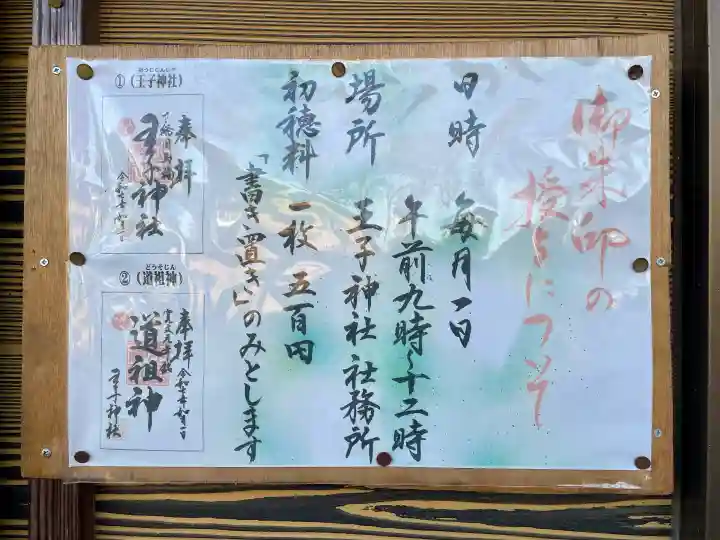 御朱印の
授与について
日時 毎月一日
午前九時〜十二時
場所 王子神社 社務所
初穂料 一枚 五百円
「書き置き」のみとします
①(王子神社)
おうじじんじゃ
奉拝
王子神社
②(道祖神)
どうそじん
奉拝
道祖神
王子神社